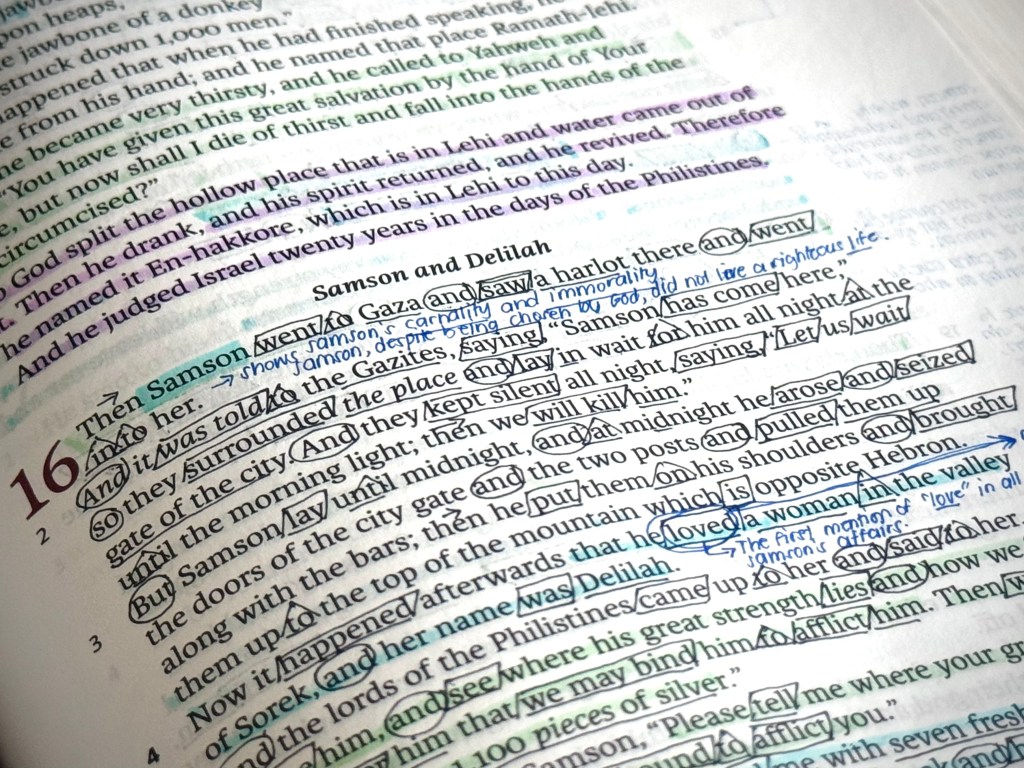 pon heaps,
e jawbone of a donkey
struck down 1,000 men."
appened that when he had finished speaking, he
e from his hand; and he named that place Ramath-lehi.
he became very thirsty, and he called to Yahweh and
"You have given this great salvation by the hand of Your
e, but now shall I die of thirst and fall into the hands of the
circumcised?"
God split the hollow place that is in Lehi and water came out of
t. Then he drank, and his spirit returned, and he revived. Therefore
he named it En-hakkore, which is in Lehi to this day.
And he judged Israel twenty years in the days of the Philistines.
Samson and Delilah
16 Then Samson went to Gaza and saw a harlot there and went
→ shows samson's carnality and immorality.
samson, despite being chosen by God, did not live a righteous life.
in to her.
2 And it was told to the Gazites, saying, "Samson has come here,"
so they surrounded the place and lay in wait for him all night at the
gate of the city. And they kept silent all night, saying, "Let us wait
until the morning light; then we will kill him."
3 But Samson lay until midnight, and at midnight he arose and seized
the doors of the city gate and the two posts and pulled them up
along with the bars; then he put them on his shoulders and brought
them up to the top of the mountain which is opposite Hebron.
4 Now it happened afterwards that he loved a woman in the valley
→ The first mention of "love" in all
samson's affairs.
of Sorek, and her name was Delilah.
and the lords of the Philistines came up to her and said to her,
him, and see where his great strength lies and how we
him that we may bind him to afflict him. Then
1,100 pieces of silver."
Samson, "Please tell me where your gr
to afflict you."
me with seven fresh